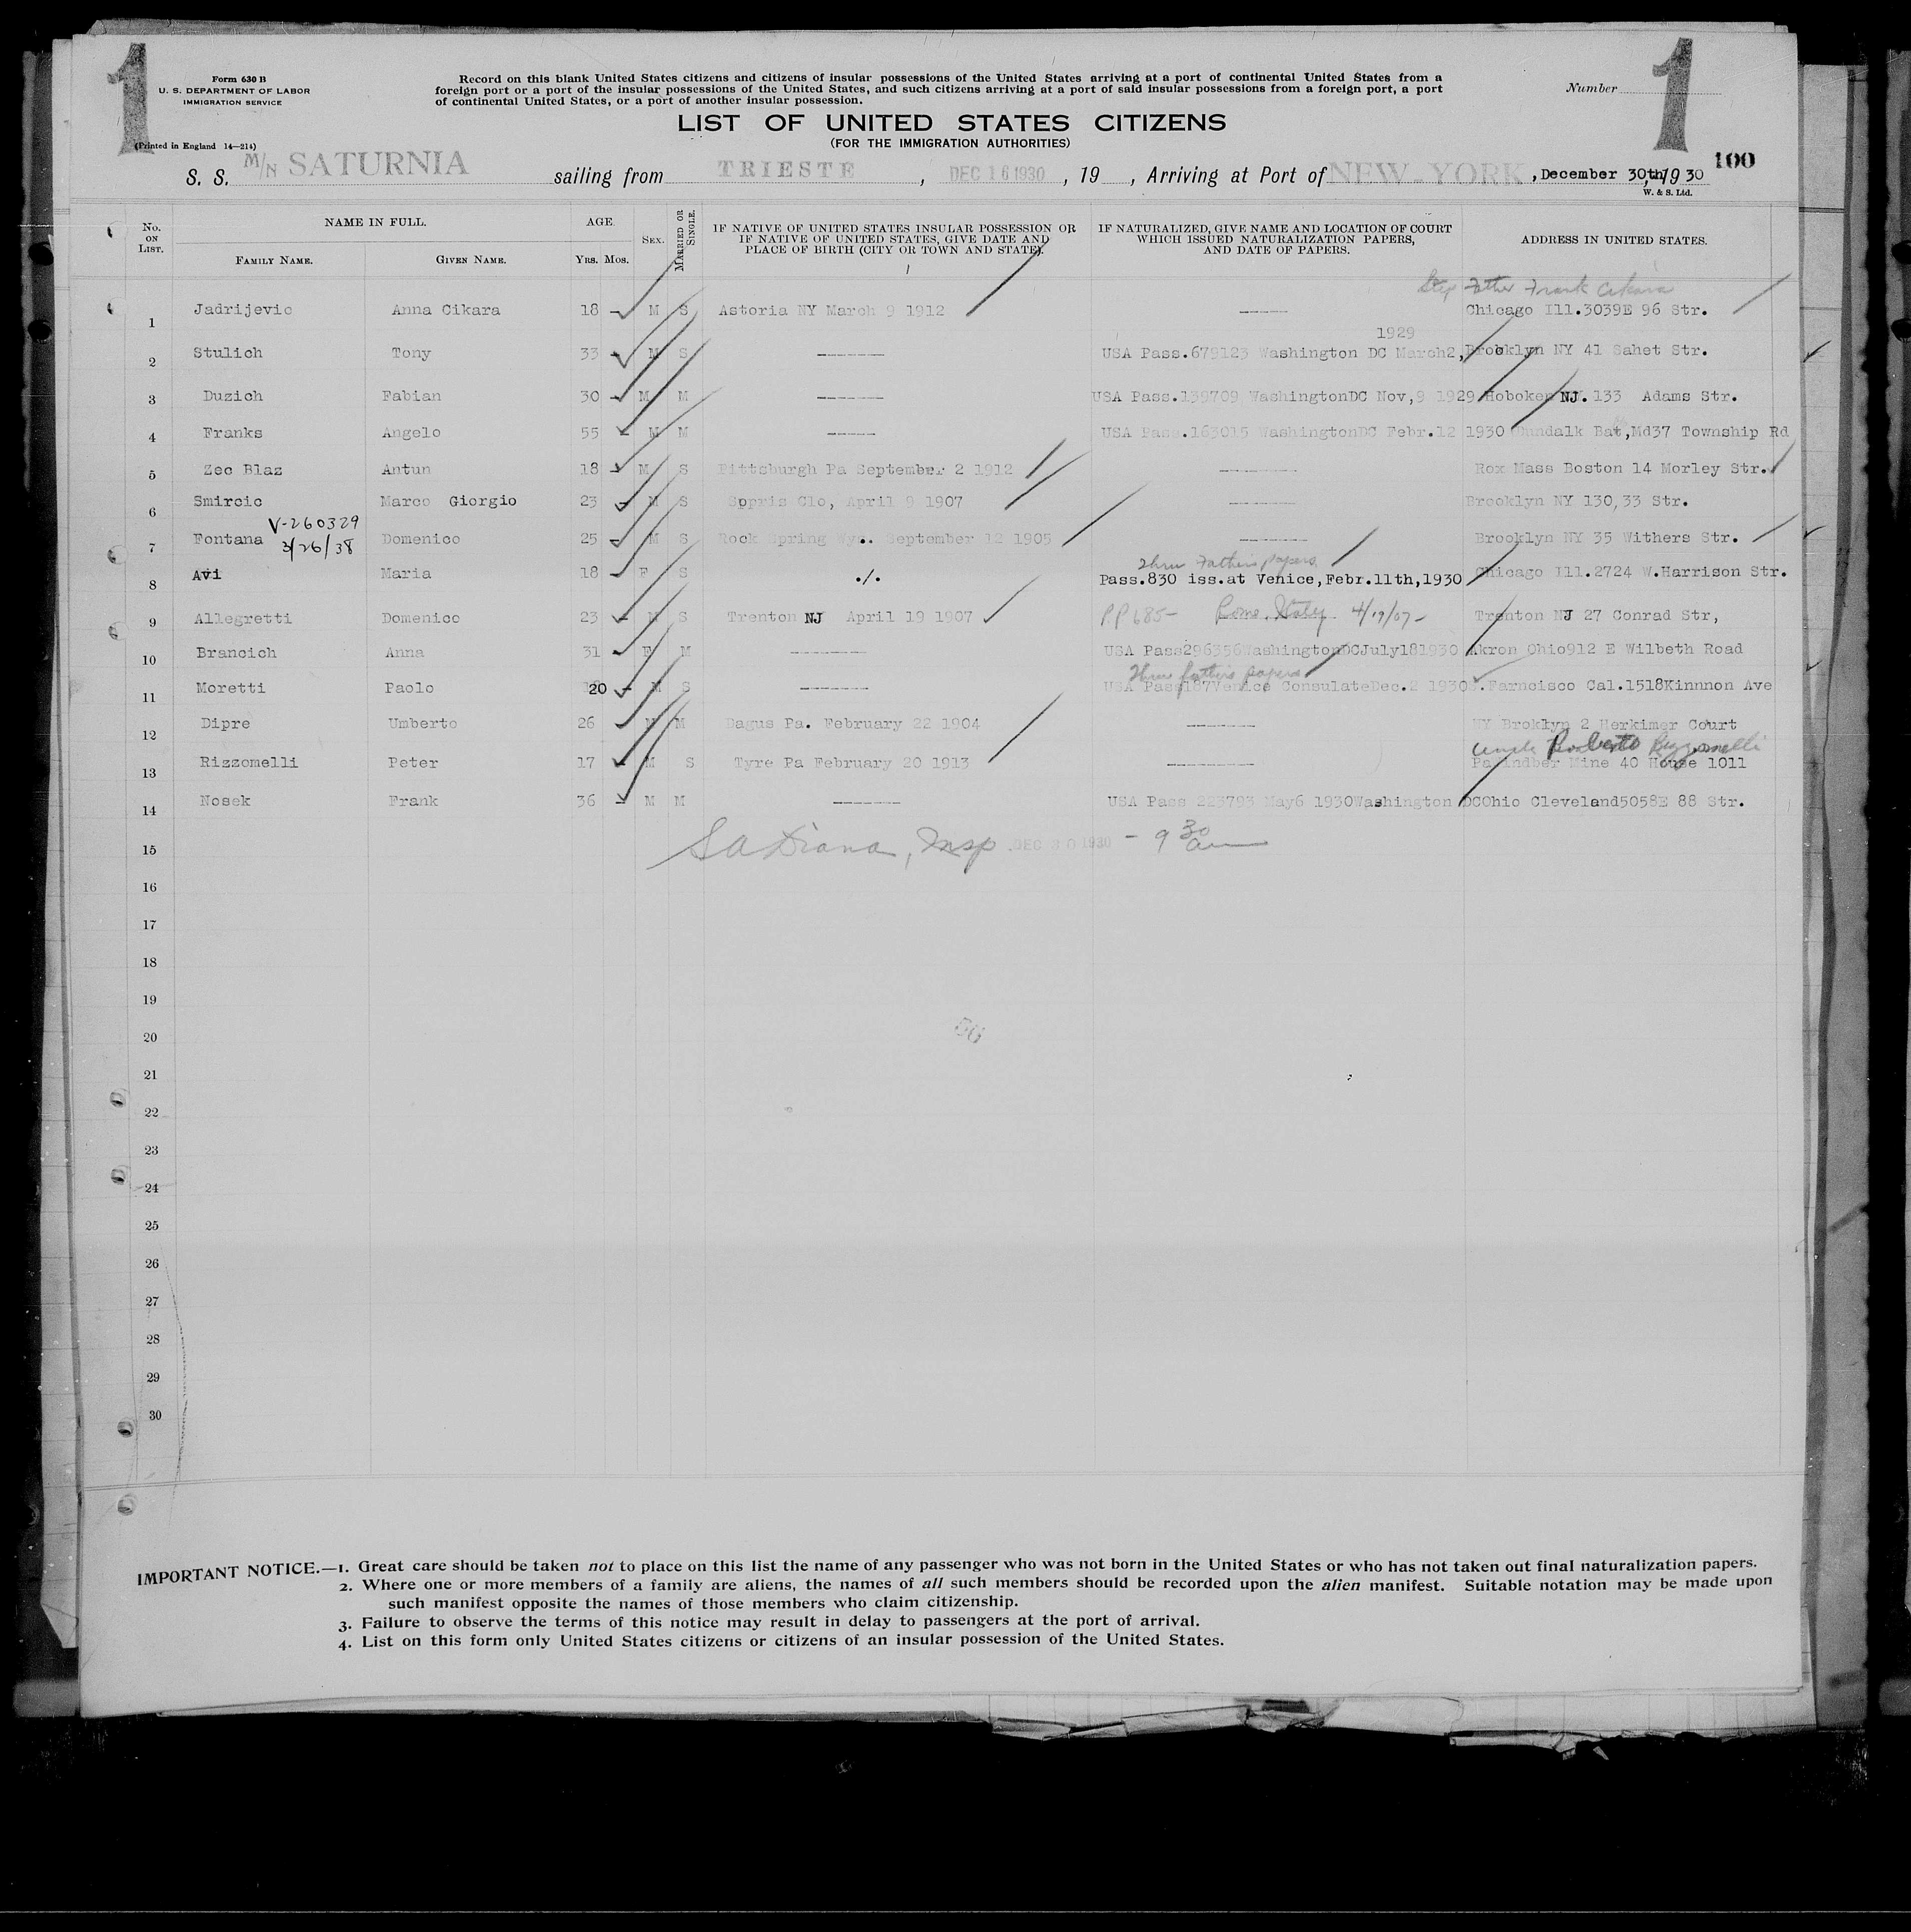 1 1
Form 630 B
U. S. DEPARTMENT OF LABOR
IMMIGRATION SERVICE
(Printed in England 14—214)
Record on this blank United States citizens and citizens of insular possessions of the United States arriving at a port of continental United States from a
foreign port or a port of the insular possessions of the United States, and such citizens arriving at a port of said insular possessions from a foreign port, a port
of continental United States, or a port of another insular possession.
Number
LIST OF UNITED STATES CITIZENS
(FOR THE IMMIGRATION AUTHORITIES)
100
S. S. M/N SATURNIA sailing from TRIESTE, DEC 16 1930, 19 , Arriving at Port of NEW-YORK, December 30th, 1930
W. & S. Ltd.
No. ON LIST. NAME IN FULL. FAMILY NAME. GIVEN NAME. AGE. YRS. MOS. SEX. MARRIED OR SINGLE.
IF NATIVE OF UNITED STATES INSULAR POSSESSION OR
IF NATIVE OF UNITED STATES, GIVE DATE AND
PLACE OF BIRTH (CITY OR TOWN AND STATE).
IF NATURALIZED, GIVE NAME AND LOCATION OF COURT
WHICH ISSUED NATURALIZATION PAPERS,
AND DATE OF PAPERS.
ADDRESS IN UNITED STATES.
Step Father Frank Cikara
1 Jadrijevic Anna Cikara 18 - M S Astoria NY March 9 1912 ------ Chicago Ill.3039E 96 Str.
1929
2 Stulich Tony 33 - M S ------ USA Pass.679123 Washington DC March2, Brooklyn NY 41 Sahet Str.
3 Duzich Fabian 30 - M M ------ USA Pass.139709 WashingtonDC Nov,9 1929 Hoboken NJ. 133 Adams Str.
4 Franks Angelo 55 - M M ------ USA Pass.163015 WashingtonDC Febr.12 1930 Md37 Township Rd
5 Zec Blaz Antun 18 - M S Pittsburgh Pa September 2 1912 ------ Rox Mass Boston 14 Morley Str.
6 Smircic Marco Giorgio 23 - M S Sopris Clo, April 9 1907 ------ Brooklyn NY 130,33 Str.
V-260329
3/26/38
7 Fontana Domenico 25 - M S Rock Spring September 12 1905 ------ Brooklyn NY 35 Withers Str.
Thru Father's papers
8 Avi Maria 18 - F S ./. Pass.830 iss.at Venice,Febr.11th,1930 Chicago Ill.2724 W.Harrison Str.
9 Allegretti Domenico 23 - M S Trenton NJ April 19 1907 P.P 685- Rome, Italy 4/19/07- Trenton NJ 27 Conrad Str,
10 Brancich Anna 31 - F M ------ USA Pass296356WashingtonDCJuly181930 Akron Ohio912 E Wilbeth Road
Thru father's papers
11 Moretti Paolo 20 - M S ------ USA Pass187Venice ConsulateDec.2 1930S.Farncisco Cal.1518Kinnnon Ave
12 Dipre Umberto 26 M M Dagus Pa. February 22 1904 ------ NY Broklyn 2 Herkimer Court
Uncle Roberto Rizzomelli
13 Rizzomelli Peter 17 - M S Tyre Pa February 20 1913 ------ Pa Windber Mine 40 House 1011
14 Nosek Frank 36 - M M ------ USA Pass 223793 May6 1930Washington DCOhio Cleveland5058E 88 Str.
S A Diana, Insp. DEC 30 1930 - 9 30 am
15
16
17
18
19
20
21
22
23
24
25
26
27
28
29
30
IMPORTANT NOTICE.—1. Great care should be taken not to place on this list the name of any passenger who was not born in the United States or who has not taken out final naturalization papers.
2. Where one or more members of a family are aliens, the names of all such members should be recorded upon the alien manifest. Suitable notation may be made upon
such manifest opposite the names of those members who claim citizenship.
3. Failure to observe the terms of this notice may result in delay to passengers at the port of arrival.
4. List on this form only United States citizens or citizens of an insular possession of the United States.